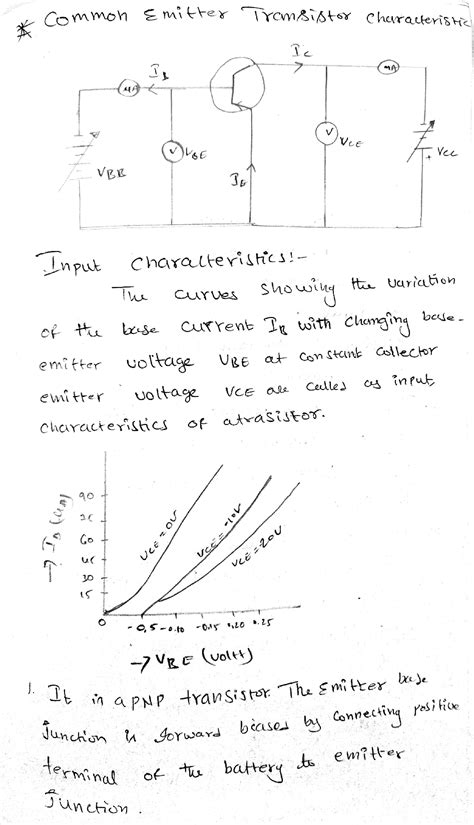 * Common Emitter Transistor characteristic
IB
MA
IC
MA
V
VBE
V
VCE
VBB
IE
+ VCC
Input characteristics:-
The curves showing the variation
of the base current IB with changing base-
emitter voltage VBE at constant collector
emitter voltage VCE are called as input
characteristics of atrasistor.
→ IB (μA)
90
60
45
30
15
VCE = 0V
VCE = -10V
VCE = -20V
0
-0.5 -0.10 -0.15 0.20 -0.25
→ VBE (volt)
1. It in a PNP transistor. The Emitter base
Junction is forward biased by connecting positive
terminal of the battery to emitter
Junction.